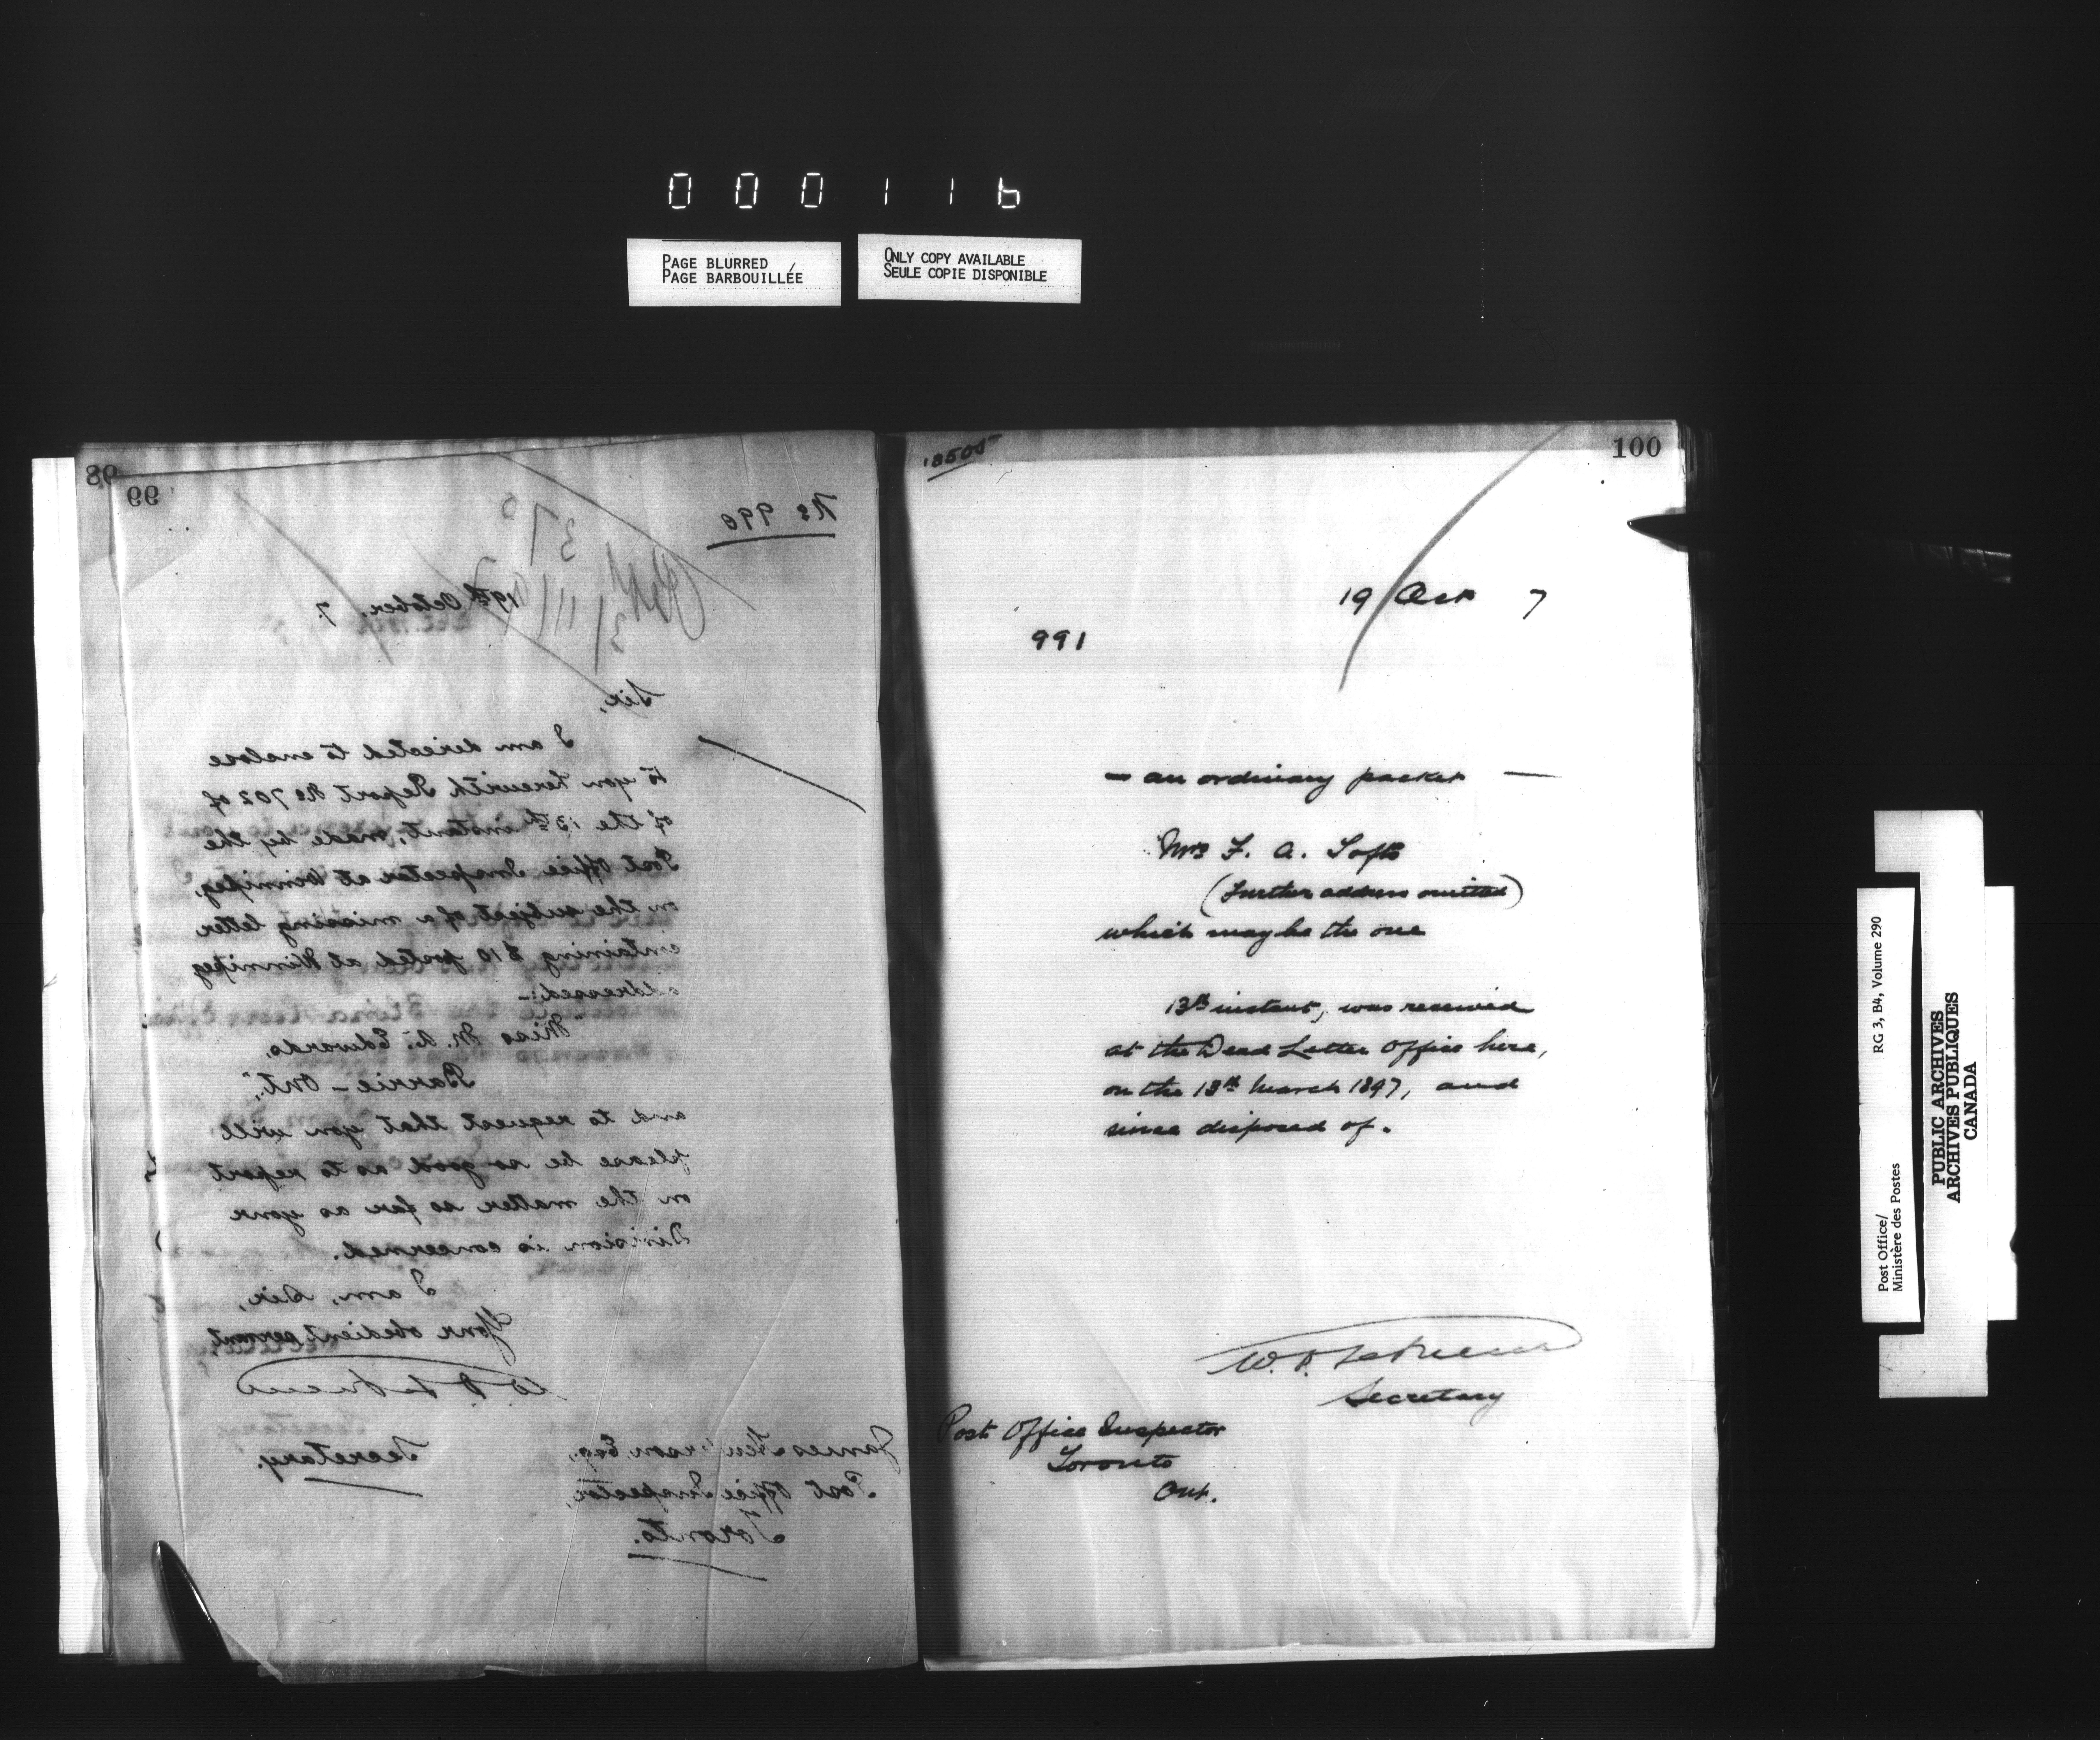 000116
PAGE BLURRED
PAGE BARBOUILLÉE
ONLY COPY AVAILABLE
SEULE COPIE DISPONIBLE
98
99
No 990
19th October, 7.
Sir,
I am directed to enclose
to you herewith Report No 702 of
of the 13th instant, made by the
Post Office Inspector at Winnipeg,
on the subject of a missing letter
containing $10 posted at Winnipeg
addressed:-
"Miss M. A. Edwards,
Barrie - Ont.",
and to request that you will
please be so good as to report
on the matter so far as your
Division is concerned.
I am, Sir,
Your obedient servant,
W. D. LeSueur
Secretary.
James Henderson Esq.,
Post Office Inspector,
Toronto.
18505
100
19 Oct 7
991
— an ordinary packet —
Mrs F. A. Tofts
(Further address omitted)
which may be the one
13th instant, was received
at the Dead Letter Office here,
on the 18th March 1897, and
since disposed of.
W. D. LeSueur
Secretary
Post Office Inspector
Toronto
Ont.
Post Office/
Ministère des Postes
RG 3, B4, Volume 290
PUBLIC ARCHIVES
ARCHIVES PUBLIQUES
CANADA